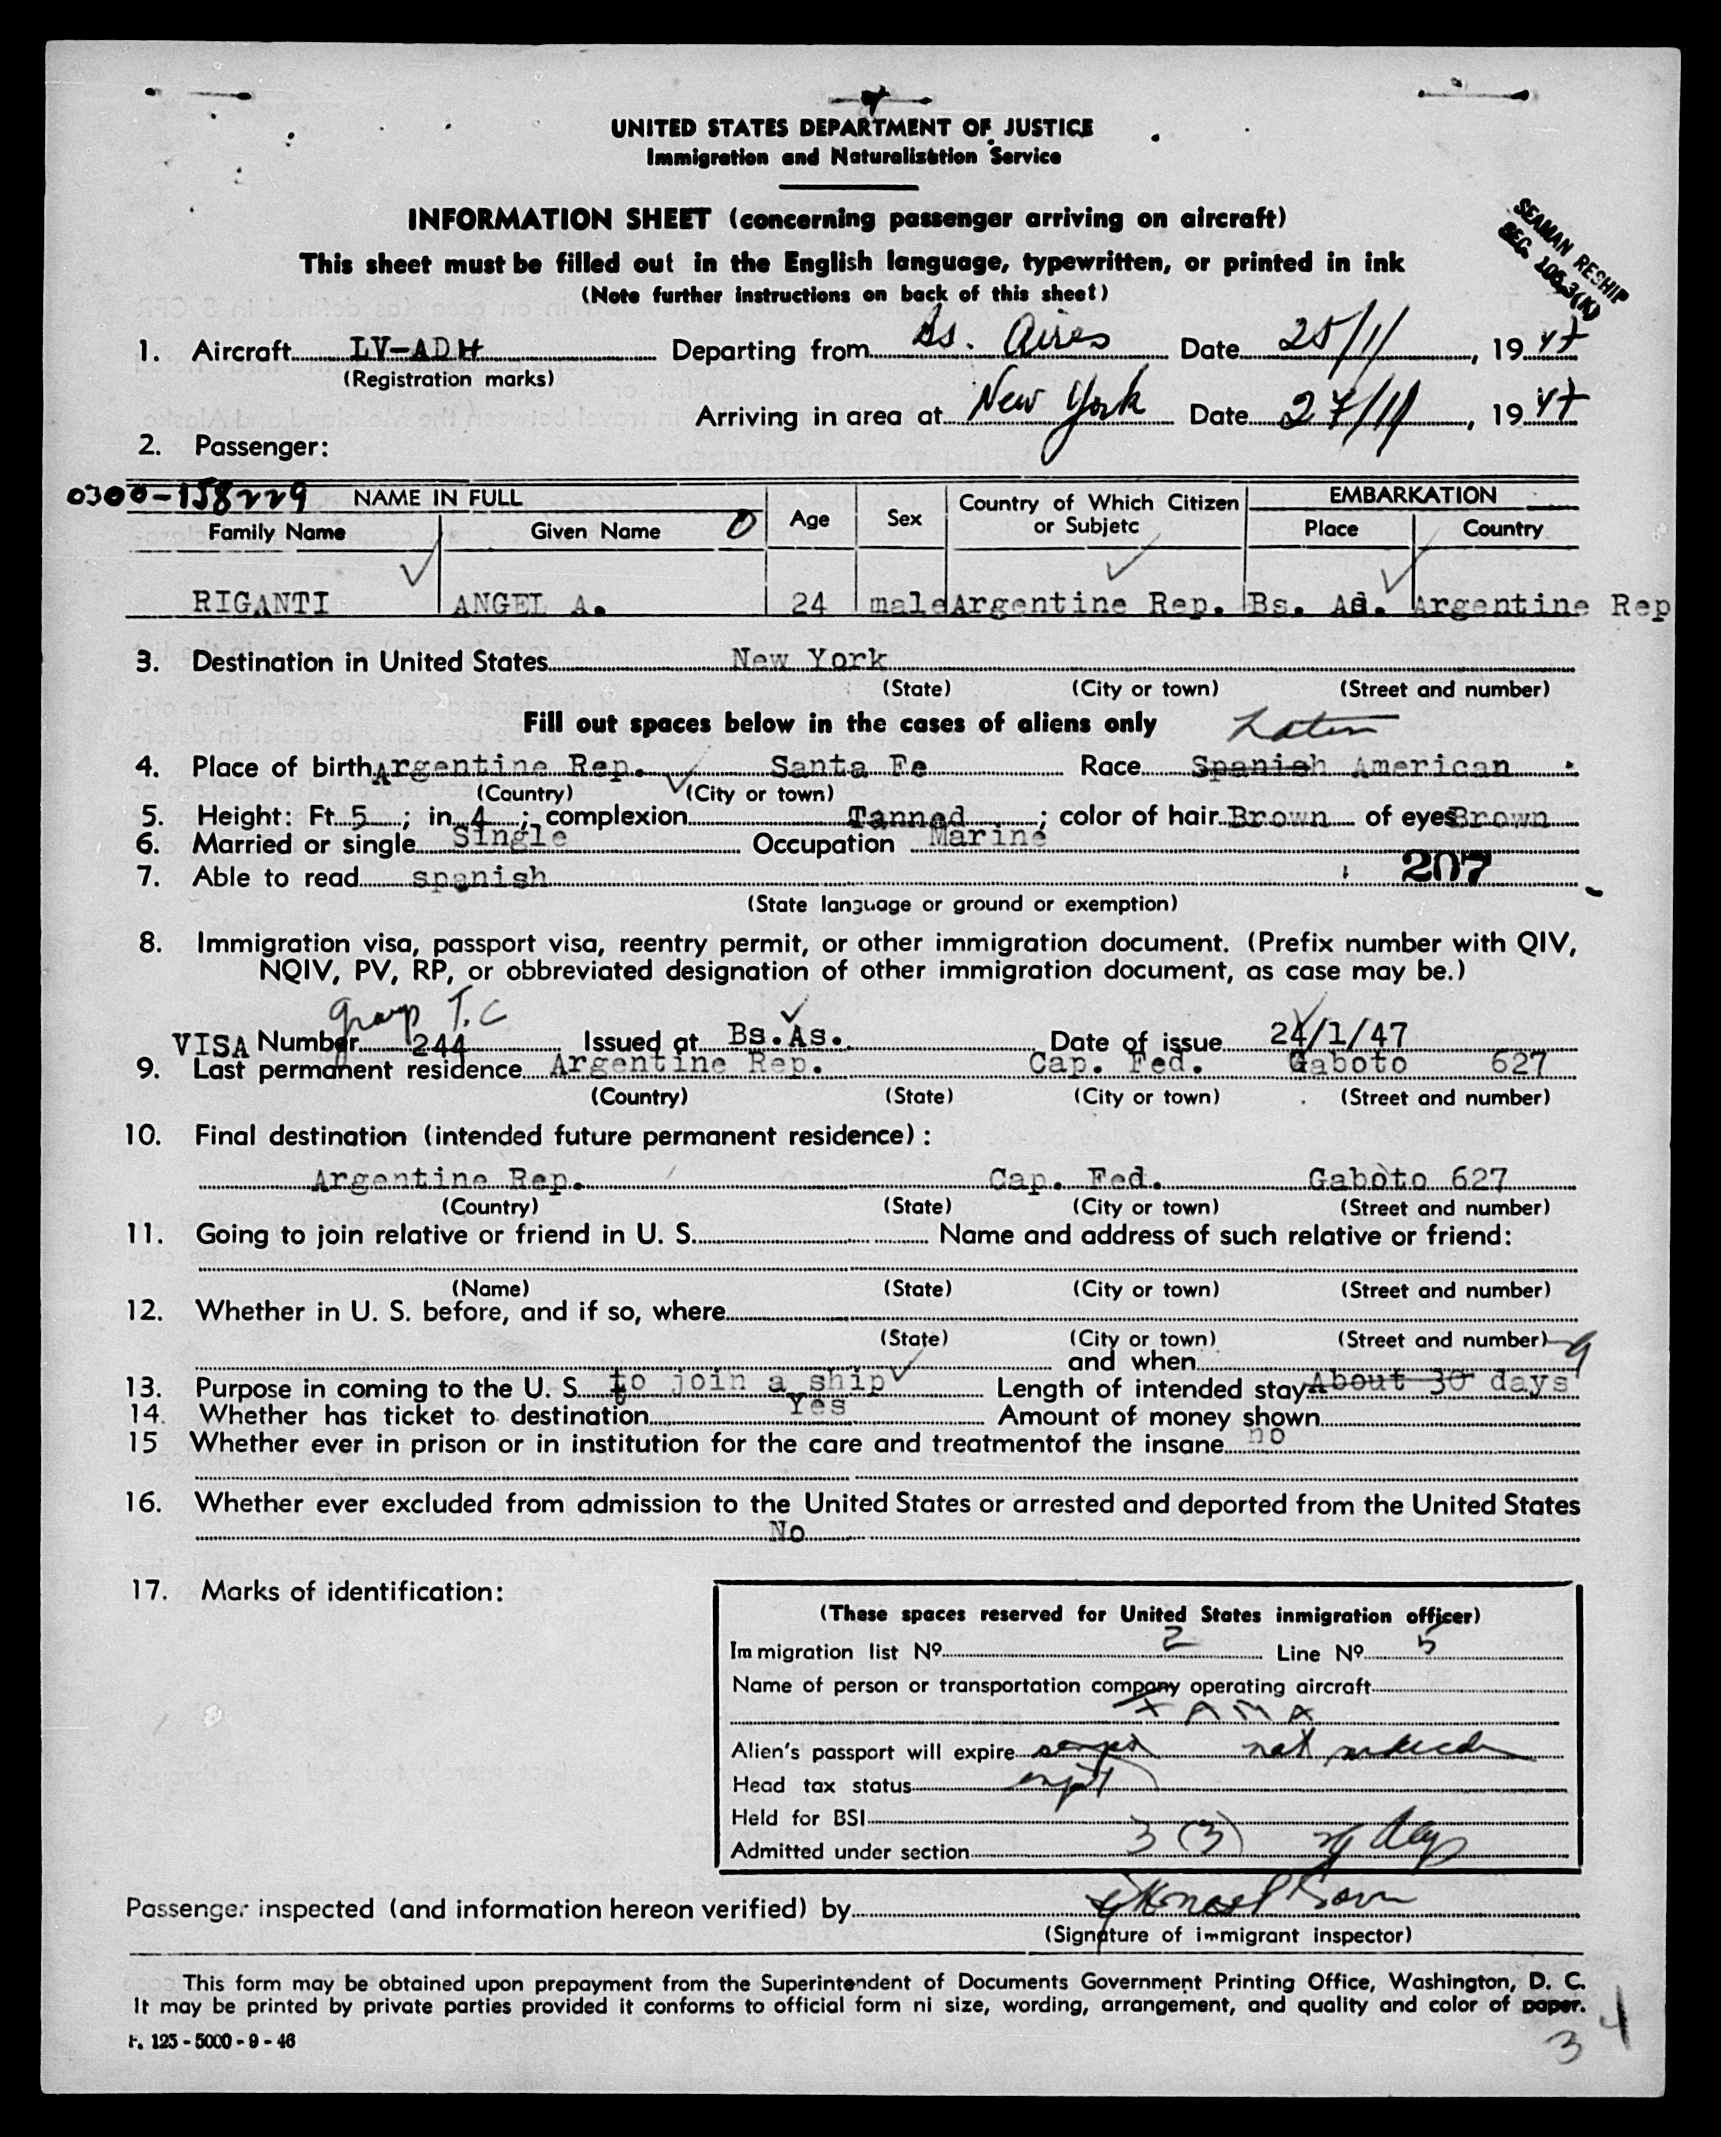 UNITED STATES DEPARTMENT OF JUSTICE
Immigration and Naturalization Service
INFORMATION SHEET (concerning passenger arriving on aircraft)
This sheet must be filled out in the English language, typewritten, or printed in ink
(Note further instructions on back of this sheet)
SEAMAN RESHIP
SEC. 105.3(K)
1. Aircraft LV-ADH Departing from Bs. Aires Date 25/1/, 1947
(Registration marks)
Arriving in area at New York Date 27/1/, 1947
2. Passenger:
0300-158229 NAME IN FULL Age Sex Country of Which Citizen or Subjetc EMBARKATION
Family Name Given Name 0 Place Country
RIGANTI ANGEL A. 24 male Argentine Rep. Bs. As. Argentine Rep
3. Destination in United States New York
(State) (City or town) (Street and number)
Fill out spaces below in the cases of aliens only Latin
4. Place of birth Argentine Rep. Santa Fe Race Spanish American
(Country) (City or town)
5. Height: Ft. 5; in. 4; complexion Tanned; color of hair Brown of eyes Brown
6. Married or single Single Occupation Marine
7. Able to read spanish 207
(State language or ground or exemption)
8. Immigration visa, passport visa, reentry permit, or other immigration document. (Prefix number with QIV,
NQIV, PV, RP, or obbreviated designation of other immigration document, as case may be.)
group T.C
VISA Number 244 Issued at Bs.As. Date of issue 24/1/47
9. Last permanent residence Argentine Rep. Cap. Fed. Gaboto 627
(Country) (State) (City or town) (Street and number)
10. Final destination (intended future permanent residece):
Argentine Rep. Cap. Fed. Gaboto 627
(Country) (State) (City or town) (Street and number)
11. Going to join relative or friend in U. S. Name and address of such relative or friend:
(Name) (State) (City or town) (Street and number)
12. Whether in U. S. before, and if so, where
(State) (City or town) (Street and number)
and when
13. Purpose in coming to the U. S. to join a ship Length of intended stay About 30 days
14. Whether has ticket to destination Yes Amount of money shown
15 Whether ever in prison or in institution for the care and treatmentof the insane no
16. Whether ever excluded from admission to the United States or arrested and deported from the United States
No
17. Marks of identification:
(These spaces reserved for United States inmigration officer)
Immigration list Nº 2 Line Nº 5
Name of person or transportation company operating aircraft
FAMA
Alien's passport will expire
Head tax status
Held for BSI
Admitted under section 3 (3) 29 days
Passenger inspected (and information hereon verified) by
(Signature of immigrant inspector)
This form may be obtained upon prepayment from the Superintendent of Documents Government Printing Office, Washington, D. C.
It may be printed by private parties provided it conforms to official form ni size, wording, arrangement, and quality and color of paper.
F. 125 - 5000 - 9 - 46
3 4